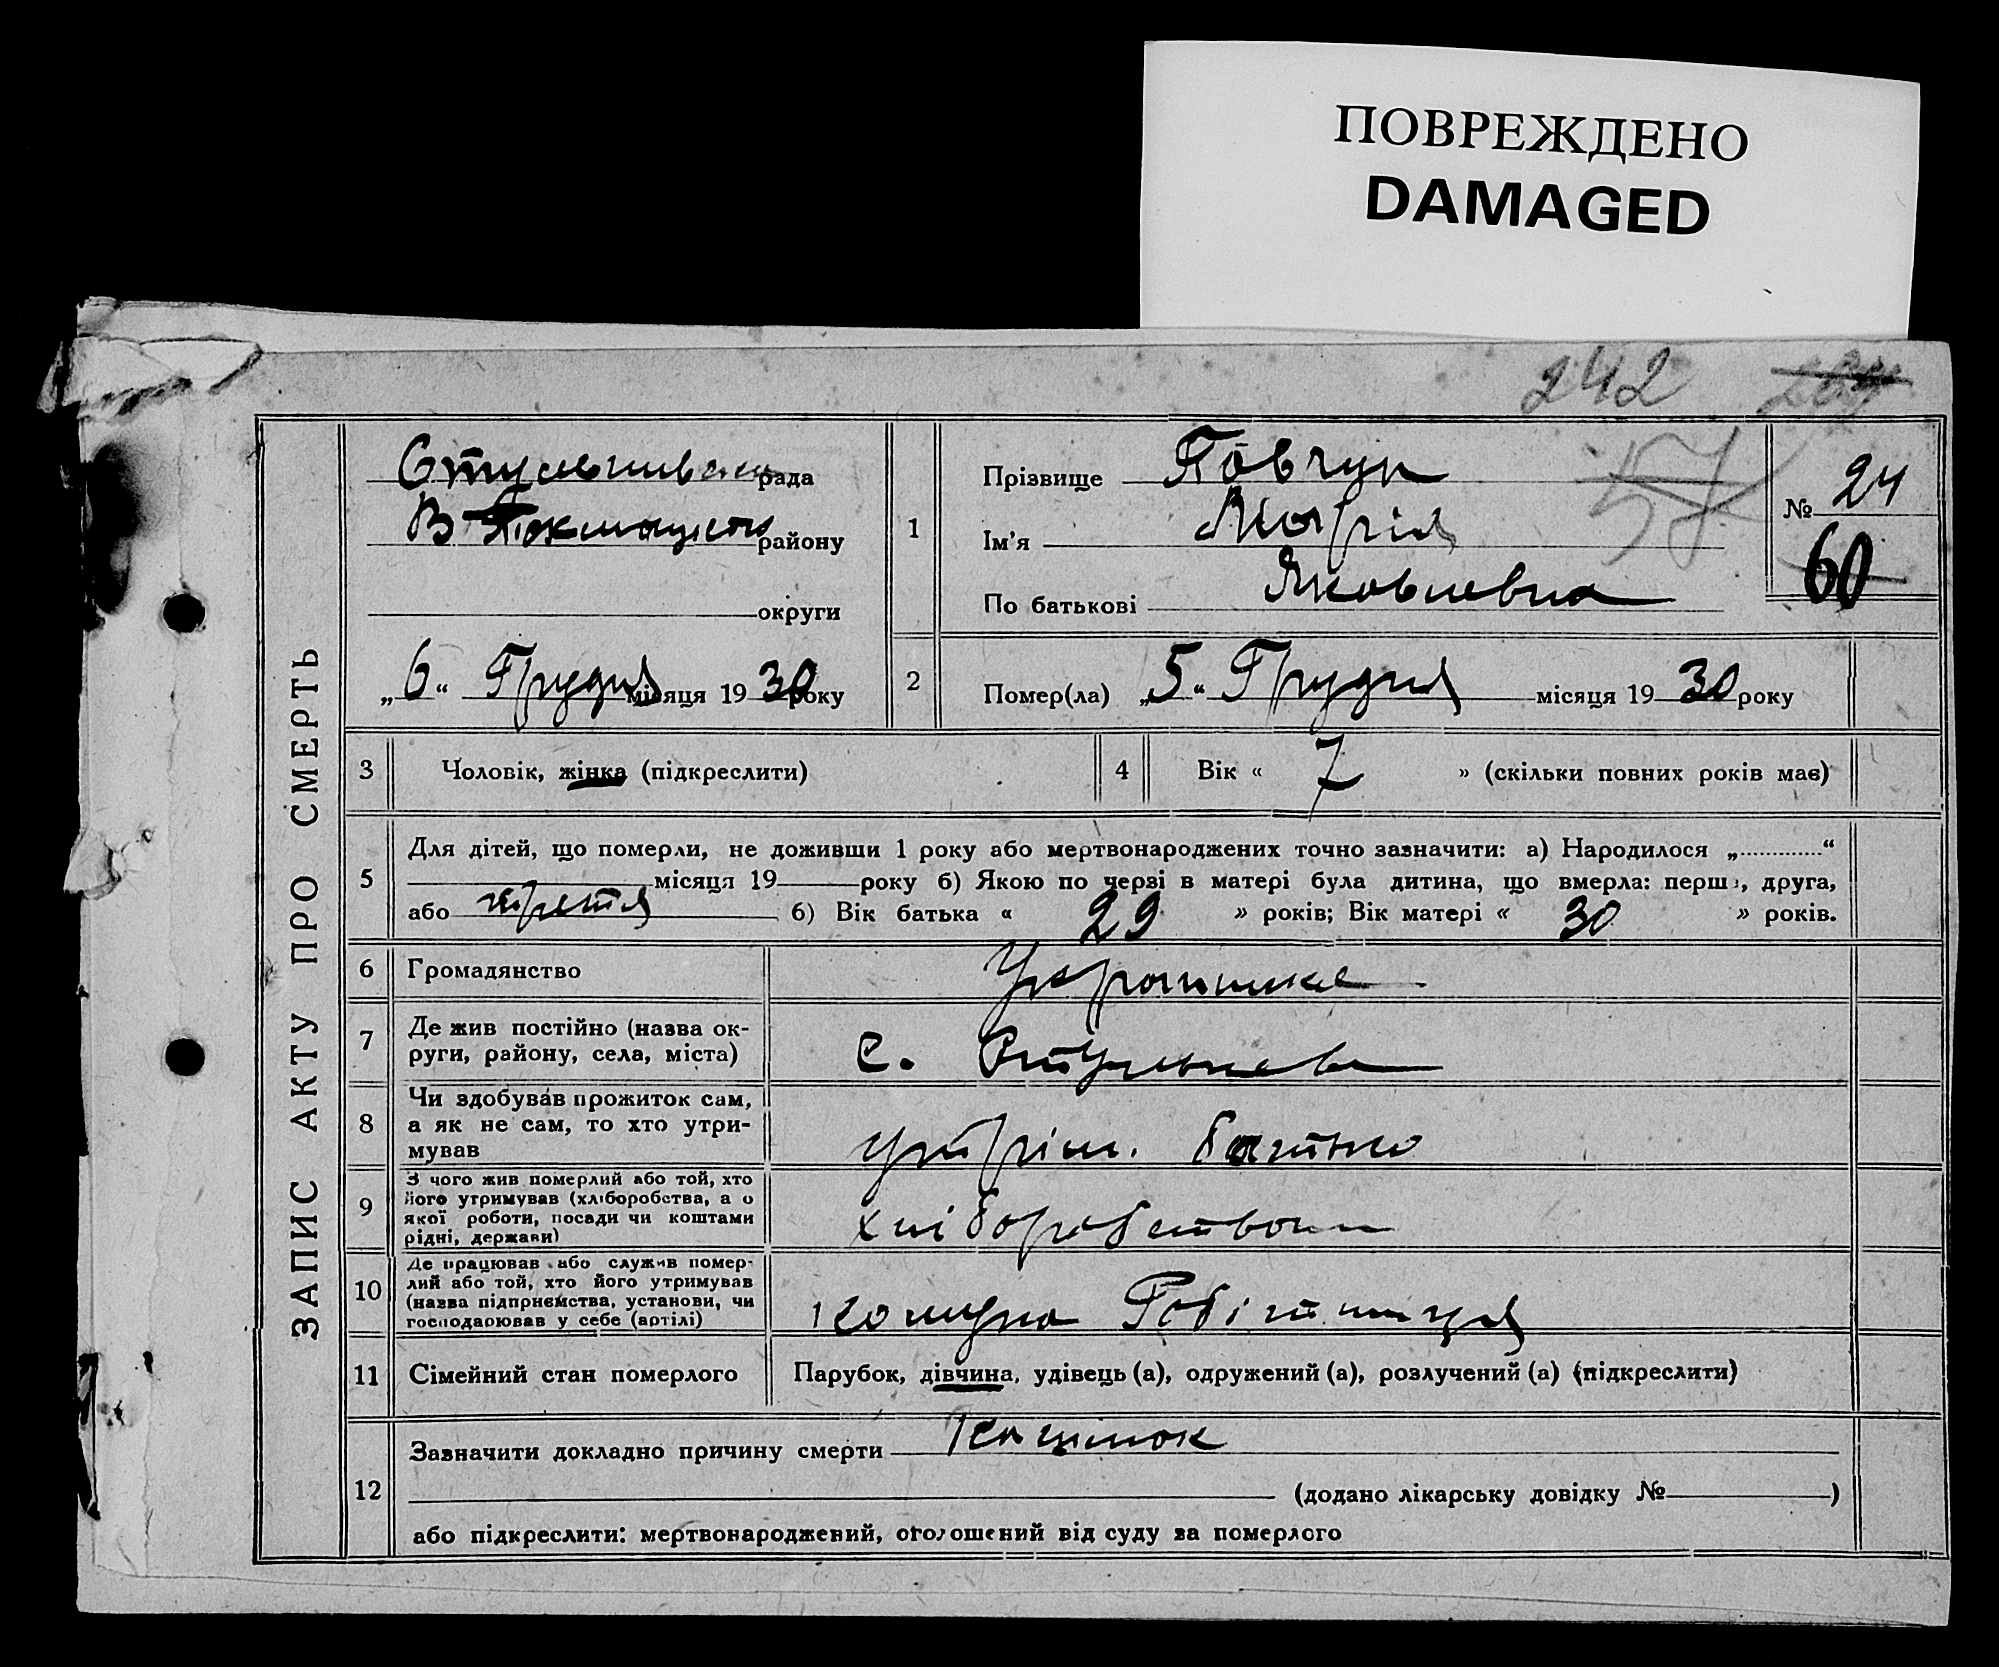 ПОВРЕЖДЕНО
DAMAGED
242
57
ЗАПИС АКТУ ПРО СМЕРТЬ
рада
В Токмацького району
округи
„6“ Грудня місяця 1930 року
1
Прізвище Товчун
Ім'я Марія
По батькові Яковлевна
№ 24
60
2
Помер(ла) „5“ Грудня місяця 1930 року
3 Чоловік, жінка (підкреслити)
4 Вік « 7 » (скільки повних років має)
5 Для дітей, що померли, не доживши 1 року або мертвонароджених точно зазначити: а) Народилося „ “
місяця 19 року б) Якою по черзі в матері була дитина, що вмерла: перша, друга,
або третя б) Вік батька « 29 » років; Вік матері « 30 » років.
6 Громадянство Українське
7 Де жив постійно (назва ок-
руги, району, села, міста) с.
8 Чи здобував прожиток сам,
а як не сам, то хто утри-
мував утрім. батько
9 З чого жив померлий або той, хто
його утримував (хліборобства, а о
якої роботи, посади чи коштами
рідні, держави) хліборобством
10 Де працював або служив помер-
лий або той, хто його утримував
(назва підприємства, установи, чи
господарював у себе (артілі) комуна Робітниця
11 Сімейний стан померлого Парубок, дівчина, удівець (а), одружений (а), розлучений (а) (підкреслити)
12 Зазначити докладно причину смерти Кашлюк
(додано лікарську довідку № )
або підкреслити: мертвонароджений, оголошений від суду за померлого